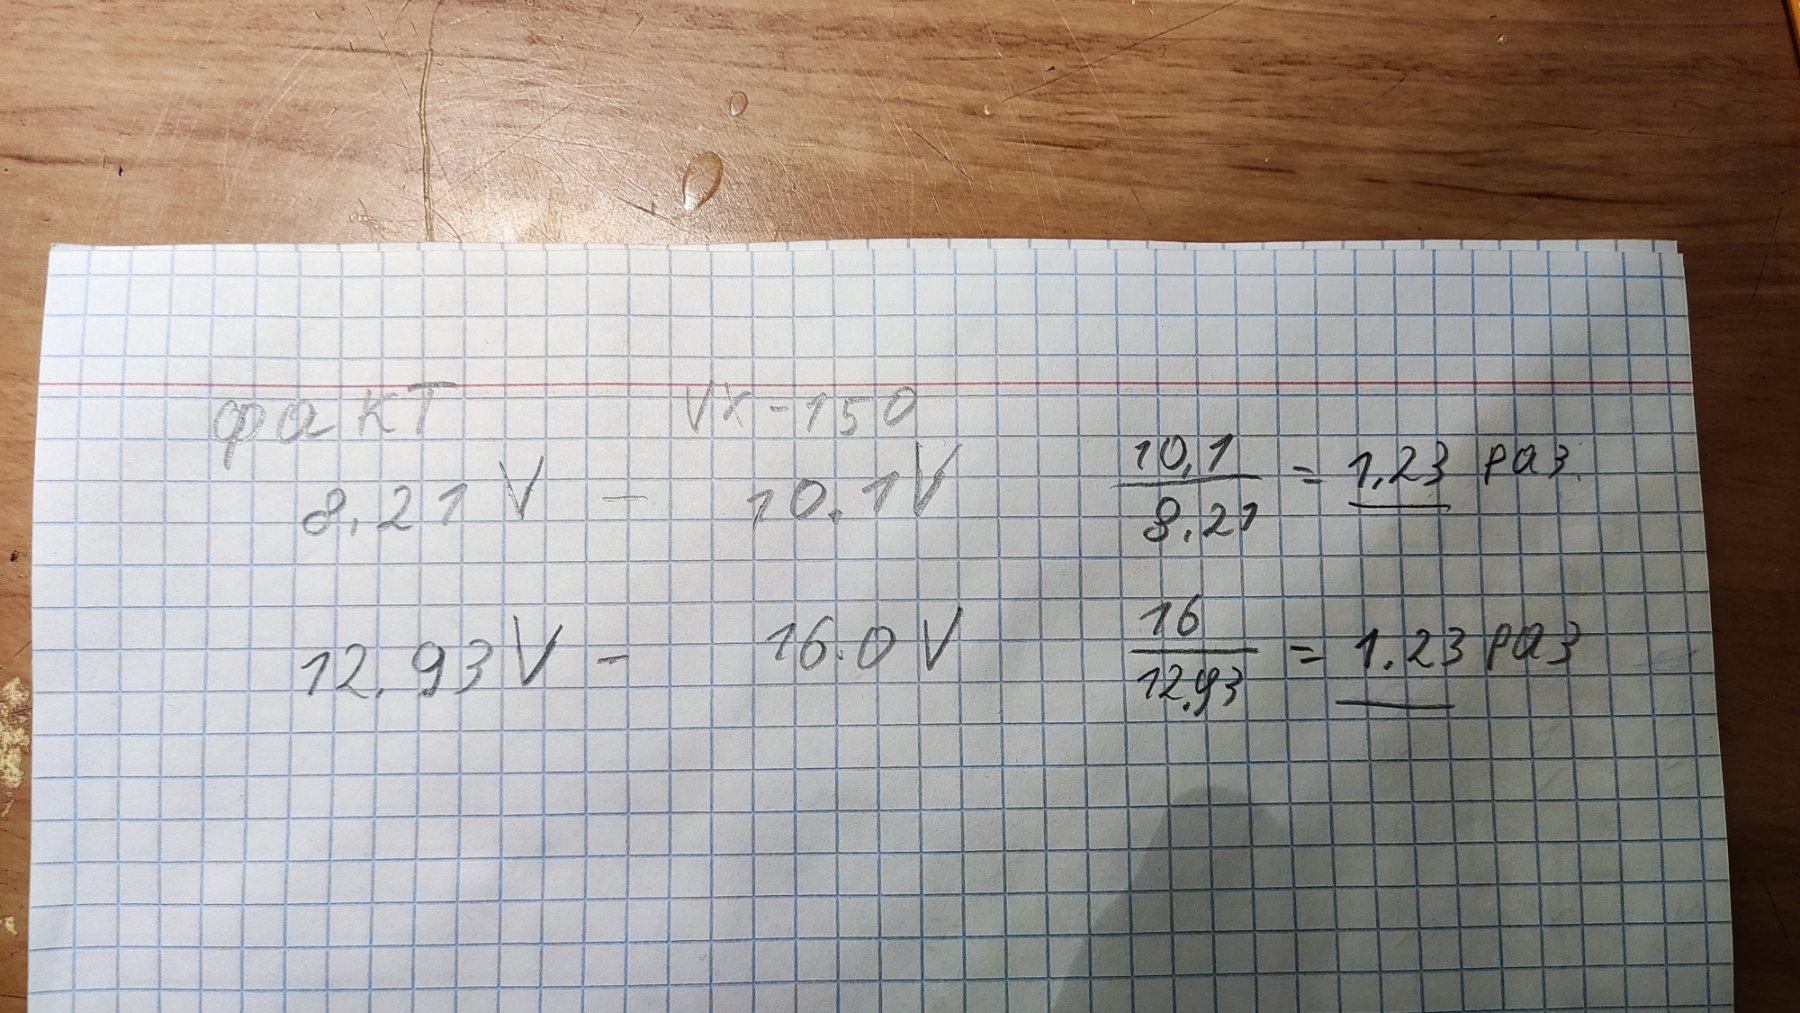 факт VX-150
8.21 V - 10.1V
10,1 / 8.21 = 1,23 раз.
12.93 V - 16.0 V
16 / 12,93 = 1.23 раз